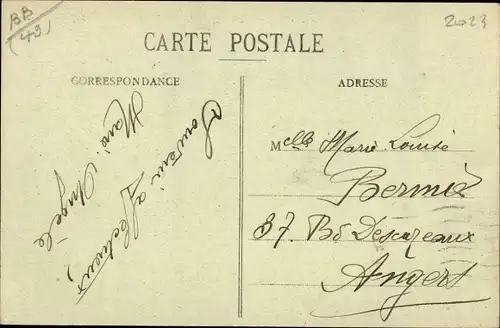 BB
(49)
2023
CARTE POSTALE
CORRESPONDANCE
ADRESSE
Souvenir
affectueux,
Marie Angèle
Melle Marie Louise
37. Bd Descazeaux
Angers